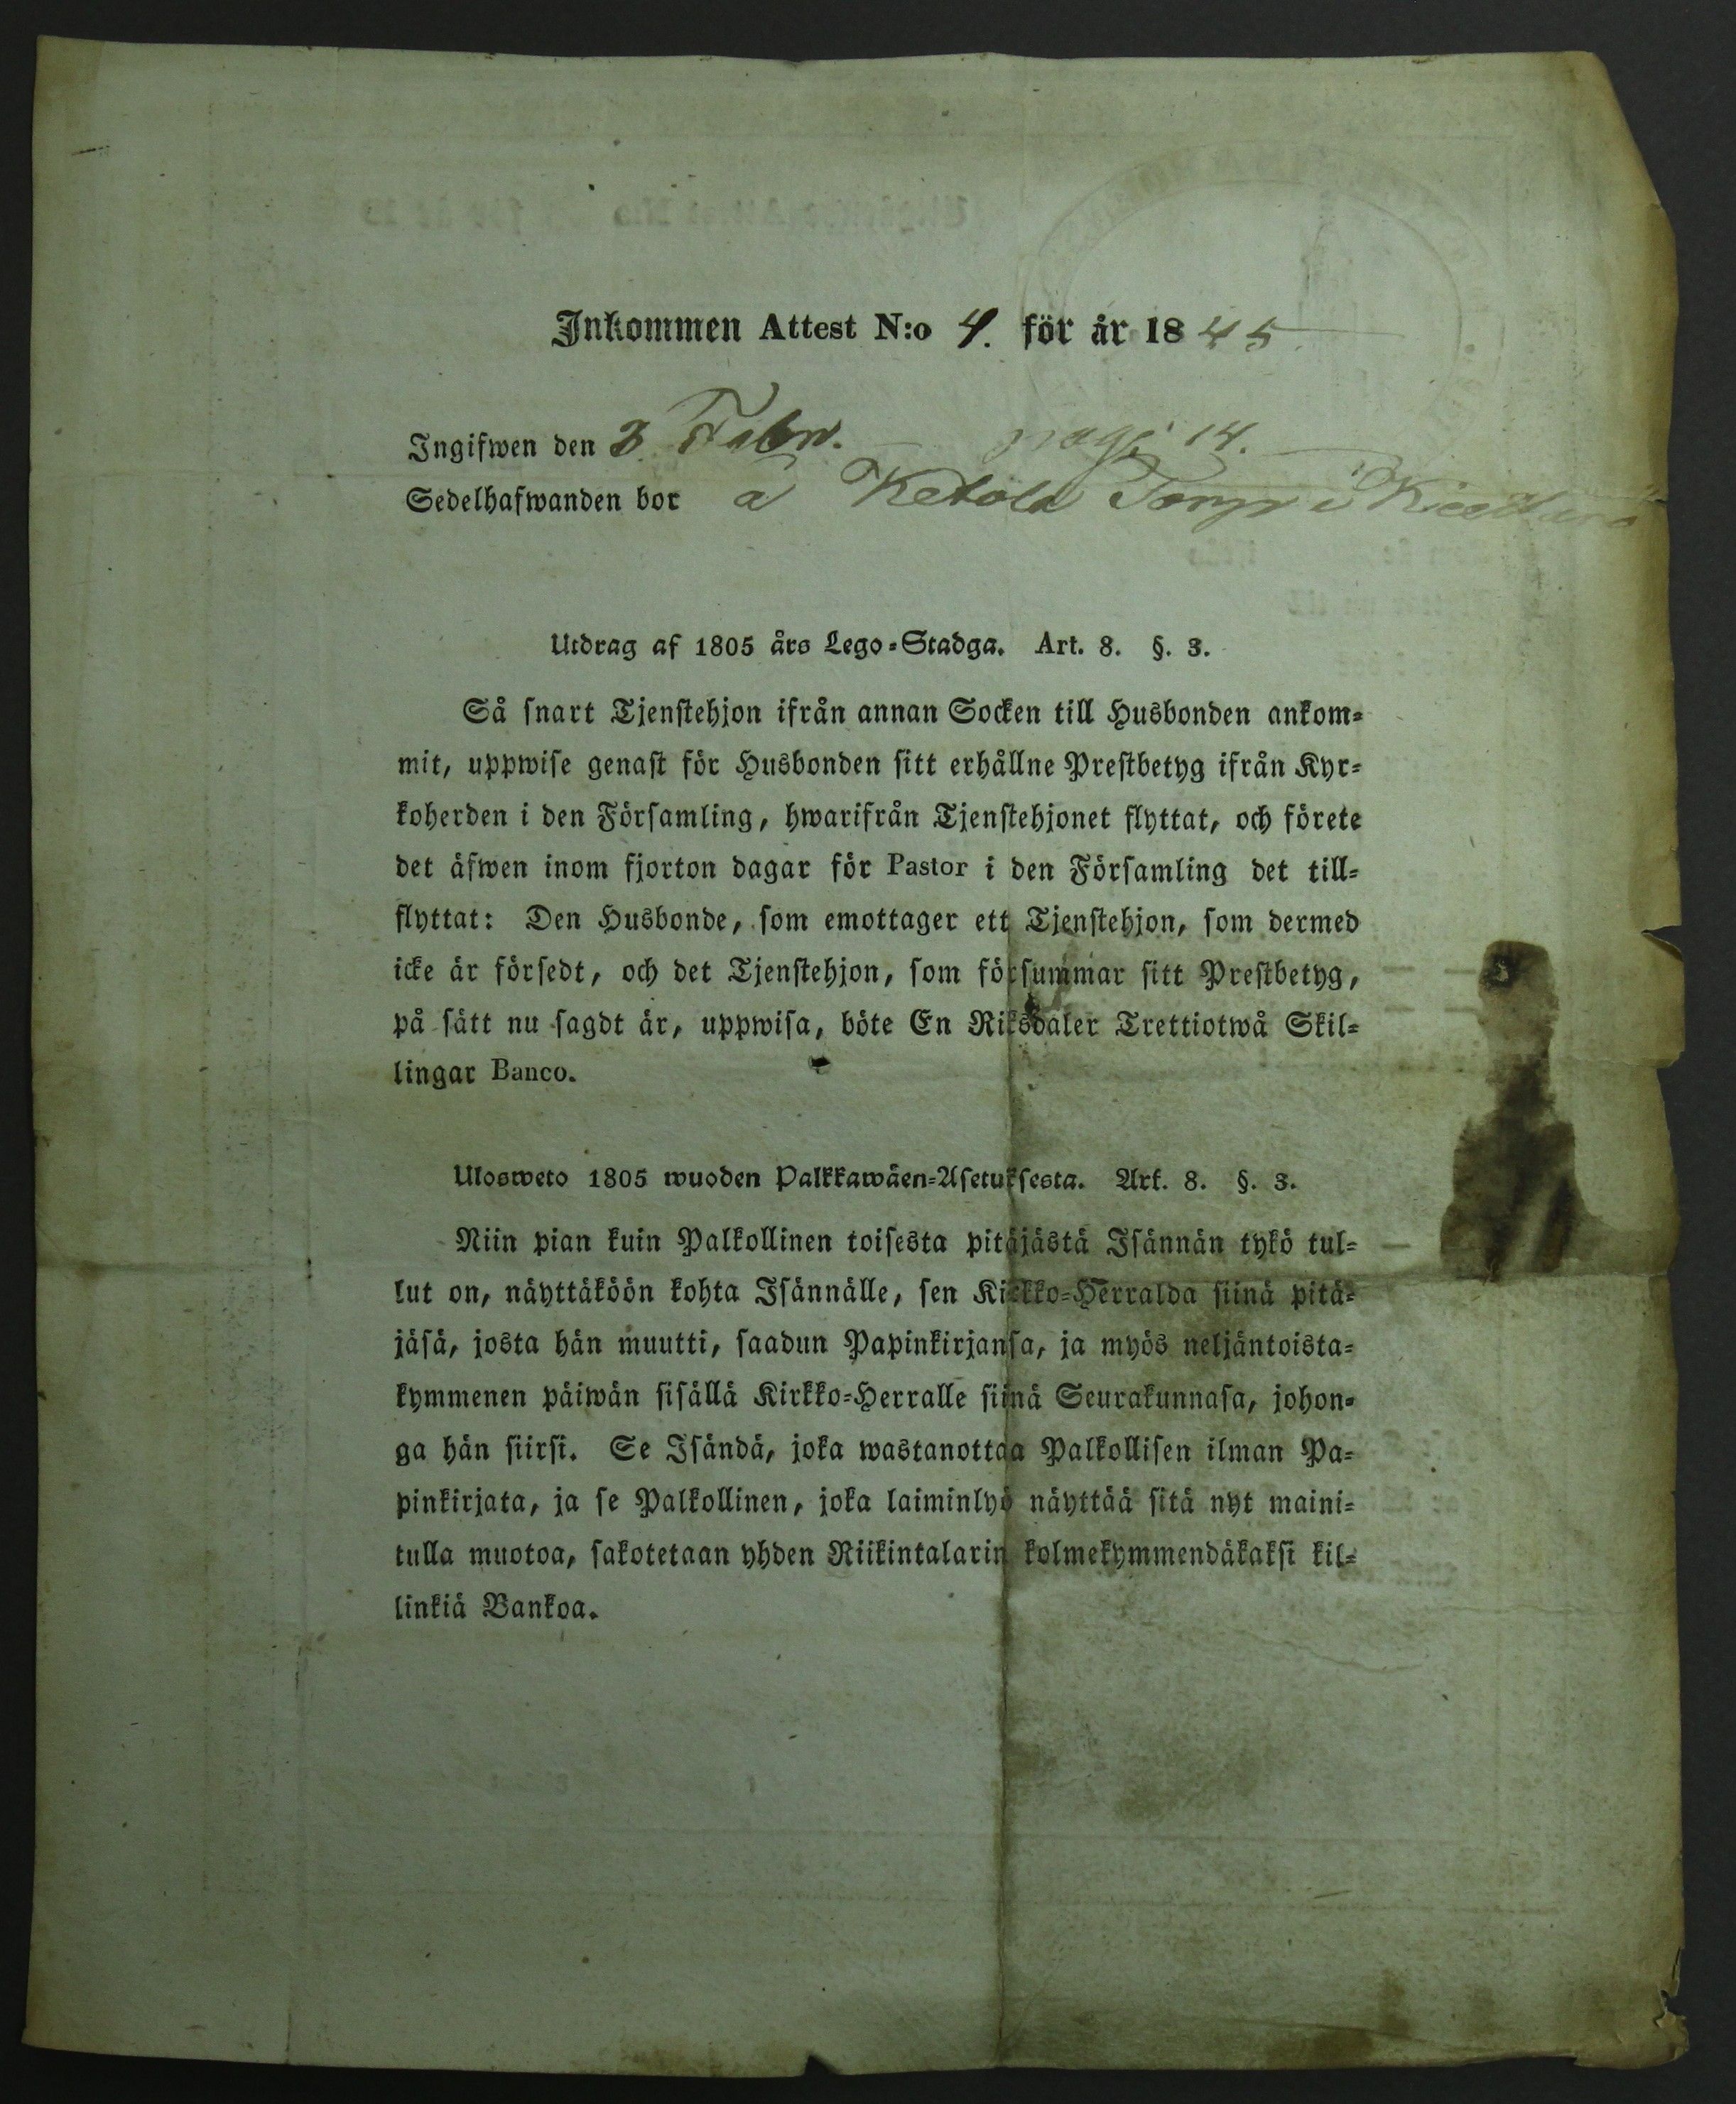 Inkommen Attest N:o 4. för år 1845
Ingifwen den 3 Febr. pag: 14.
Sedelhafwanden bor å Ketola Torp i
Utdrag af 1805 års Lego-Stadga. Art. 8. §. 3.
Så snart Tjenstehjon ifrån annan Socken till Husbonden ankom-
mit, uppwise genast för Husbonden sitt erhållne Prestbetyg ifrån Kyr-
koherden i den Församling, hwarifrån Tjenstehjonet flyttat, och förete
det äfwen inom fjorton dagar för Pastor i den Församling det till-
flyttat: Den Husbonde, som emottager ett Tjenstehjon, som dermed
icke är försedt, och det Tjenstehjon, som försummar sitt Prestbetyg,
på sätt nu sagdt är, uppwisa, böte En Riksdaler Trettiotwå Skil-
lingar Banco.
Ulosweto 1805 wuoden Palkkawäen-Asetuksesta. Art. 8. §. 3.
Niin pian kuin Palkollinen toisesta pitäjästä Isännän tykö tul-
lut on, näyttäköön kohta Isännälle, sen Kirkko-Herralda siinä pitä-
jäsä, josta hän muutti, saadun Papinkirjansa, ja myös neljäntoista-
kymmenen päiwän sisällä Kirkko-Herralle siinä Seurakunnasa, johon-
ga hän siirsi. Se Isändä, joka wastanottaa Palkollisen ilman Pa-
pinkirjata, ja se Palkollinen, joka laiminlyö näyttää sitä nyt maini-
tulla muotoa, sakotetaan yhden Riikintalarin kolmekymmendäkaksi kil-
linkiä Bankoa.